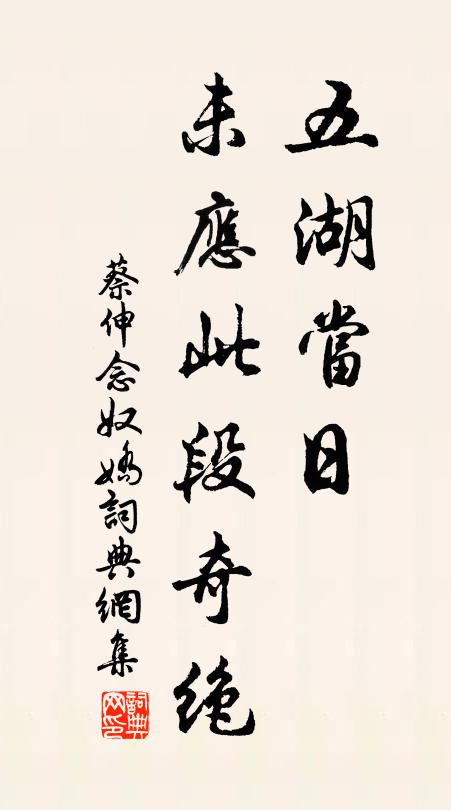 五湖當日
未應此段奇絶
蔡伸念奴嬌詞典網集
詞典网印